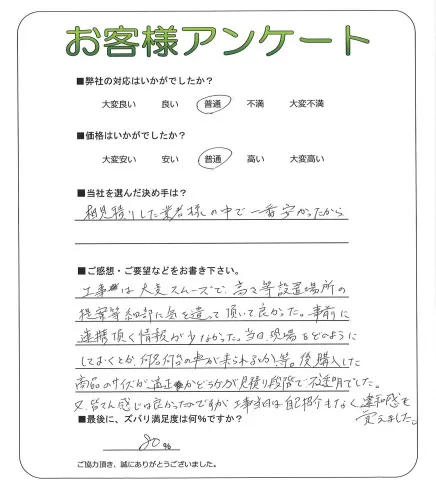 お客様アンケート
■弊社の対応はいかがでしたか？
大変良い 良い 普通 不満 大変不満
■価格はいかがでしたか？
大変安い 安い 普通 高い 大変高い
■当社を選んだ決め手は？
相見積りした業者様の中で一番安かったから
■ご感想・ご要望などをお書き下さい。
工事は大変スムーズで、高さ等設置場所の
提案等細部に気を遣って頂いて良かった。事前に
連携頂く情報が少なかった。当日、現場をどのように
しておくとか、何名何台の車が来られるとか、等。後購入した
商品のサイズが適正かどうかが見積り段階で不透明でした。
又、皆さん感じは良かったのですが工事当日は自己紹介もなく違和感を
覚えました。
■最後に、ズバリ満足度は何％ですか？
80％
ご協力頂き、誠にありがとうございました。